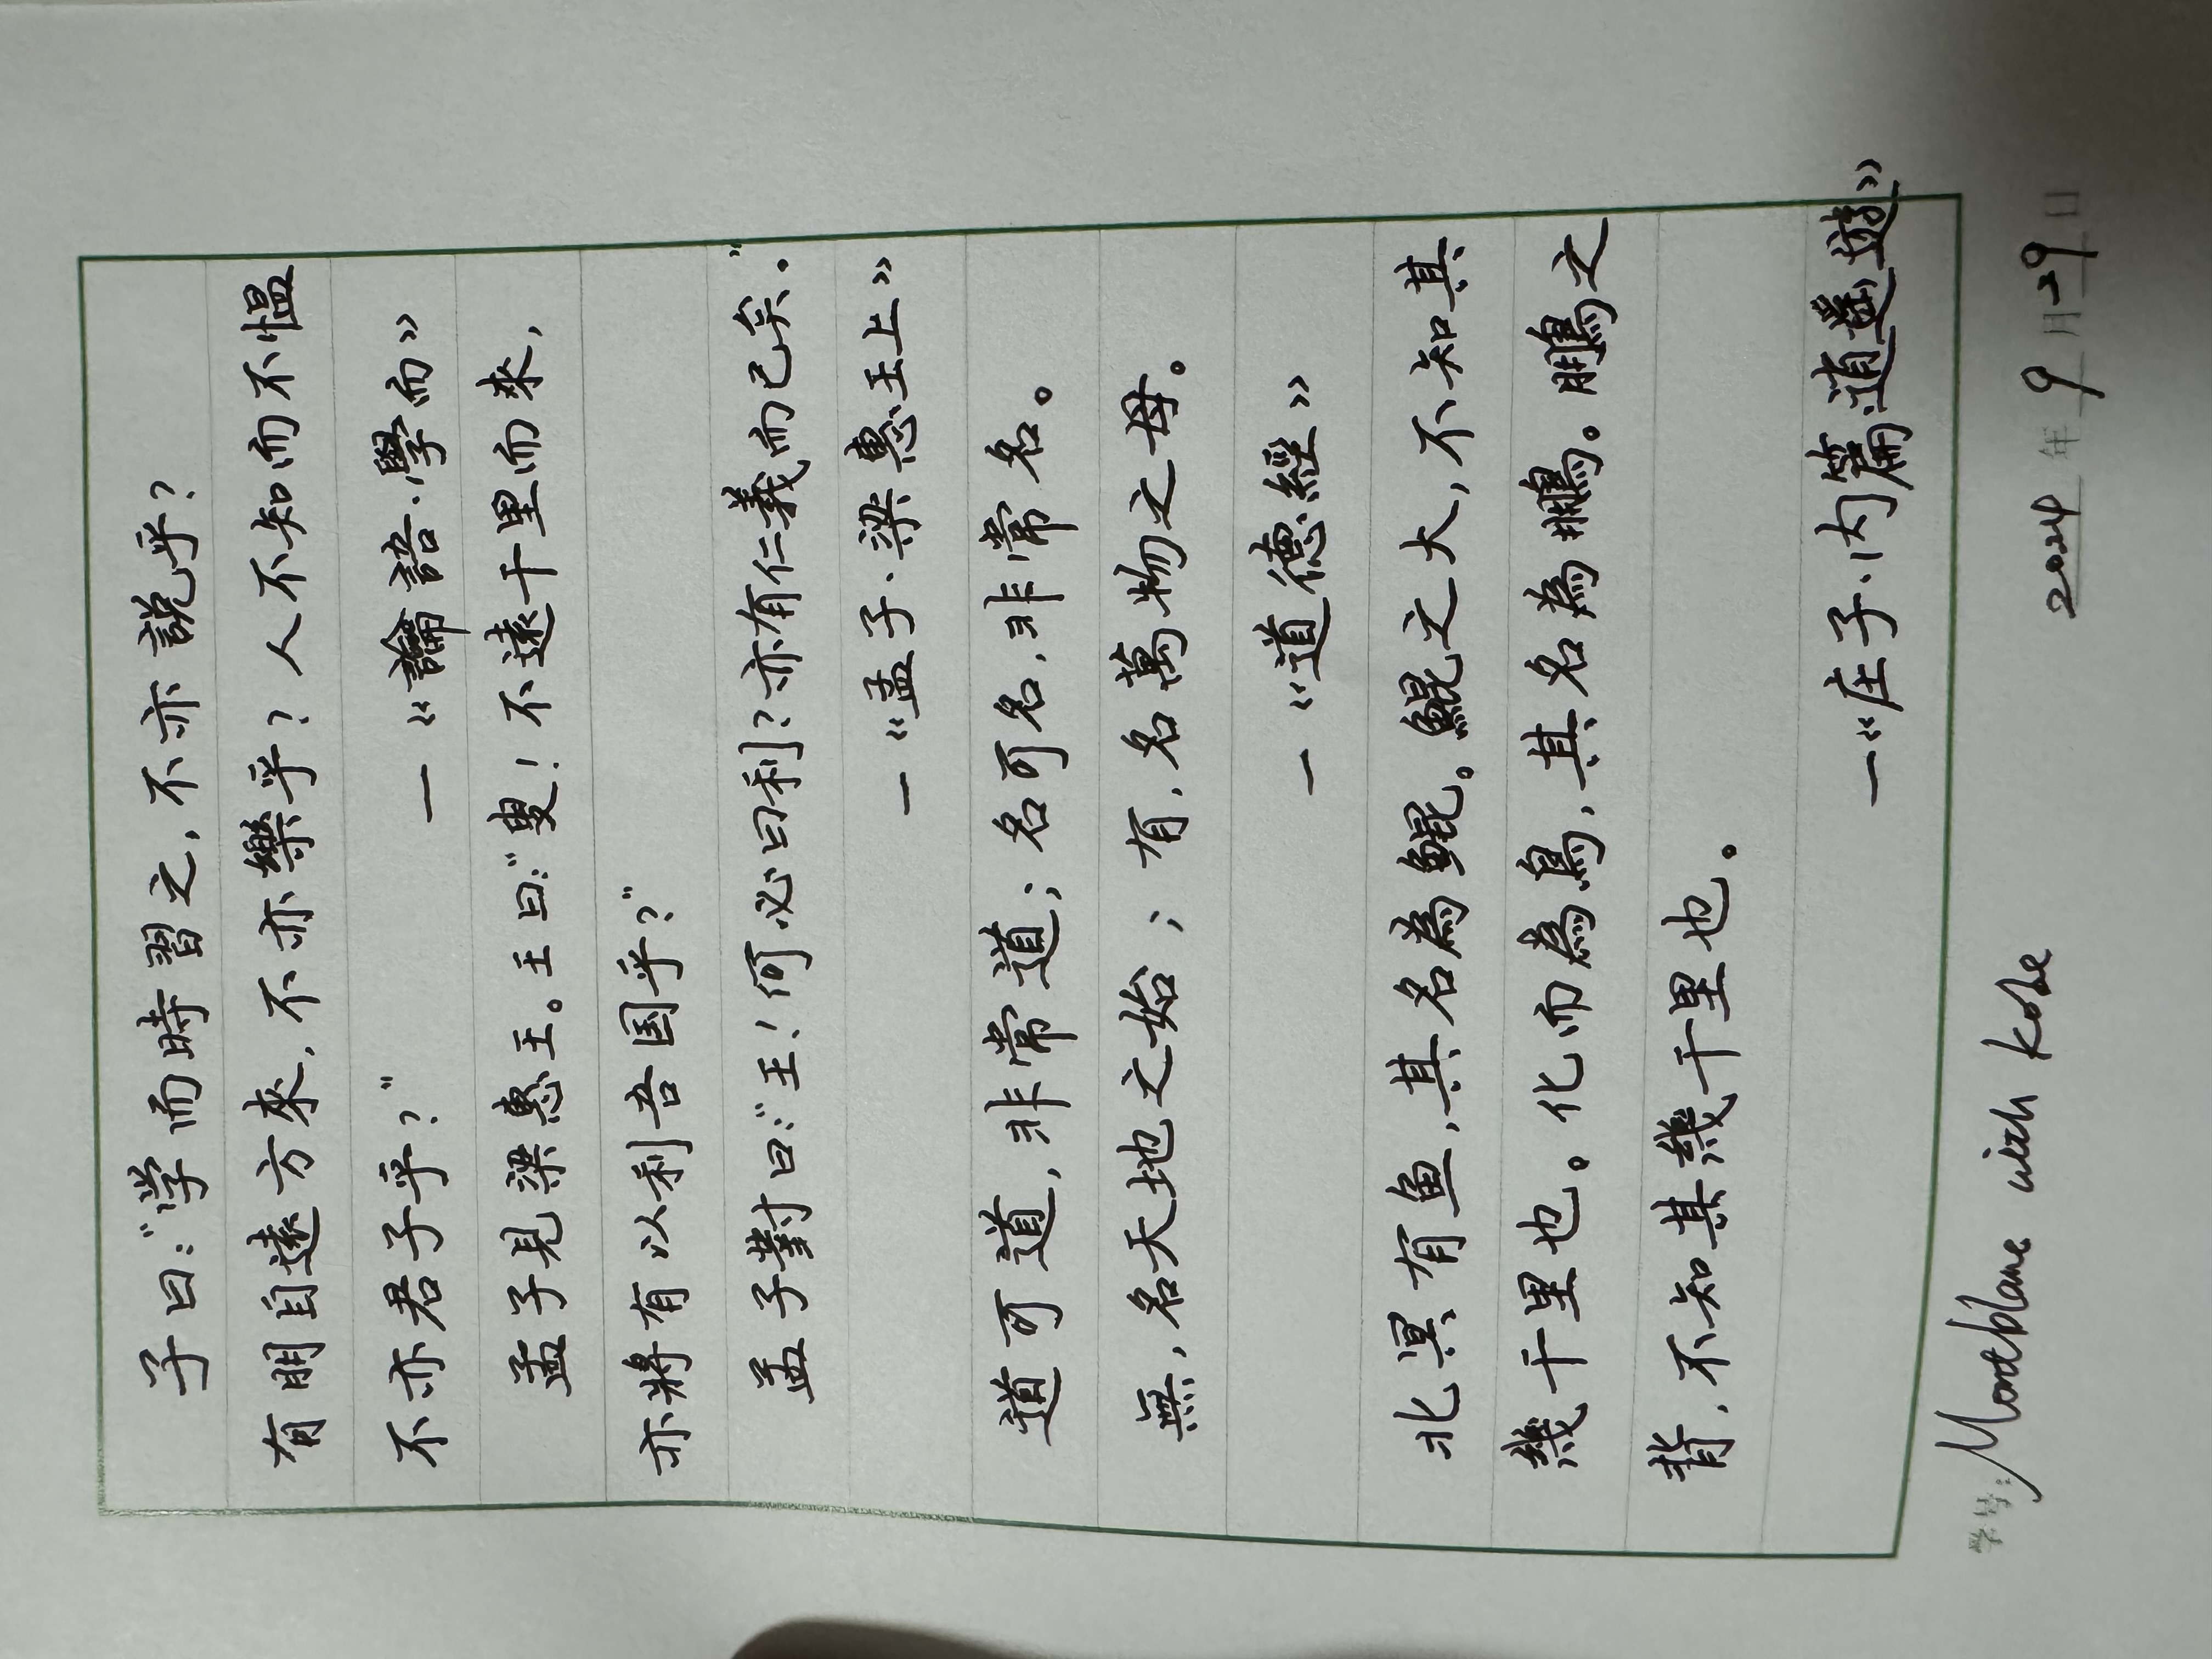 子曰：“学而時習之，不亦説乎？
有朋自遠方來，不亦樂乎？人不知而不愠
不亦君子乎？”　—《論語·學而》
孟子見梁惠王。王曰：“叟！不遠千里而來，
亦將有以利吾国乎？”
孟子對曰：“王！何必曰利？亦有仁義而已矣。”
—《孟子·梁惠王上》
道可道，非常道；名可名，非常名。
無，名天地之始；有，名萬物之母。
—《道德經》
北冥有鱼，其名為鲲。鯤之大，不知其
幾千里也。化而為鳥，其名為鵬。鵬之
背，不知其幾千里也。
—《庄子·内篇·逍遥遊》
学号：Montblanc with Kobe
2024年9月29日